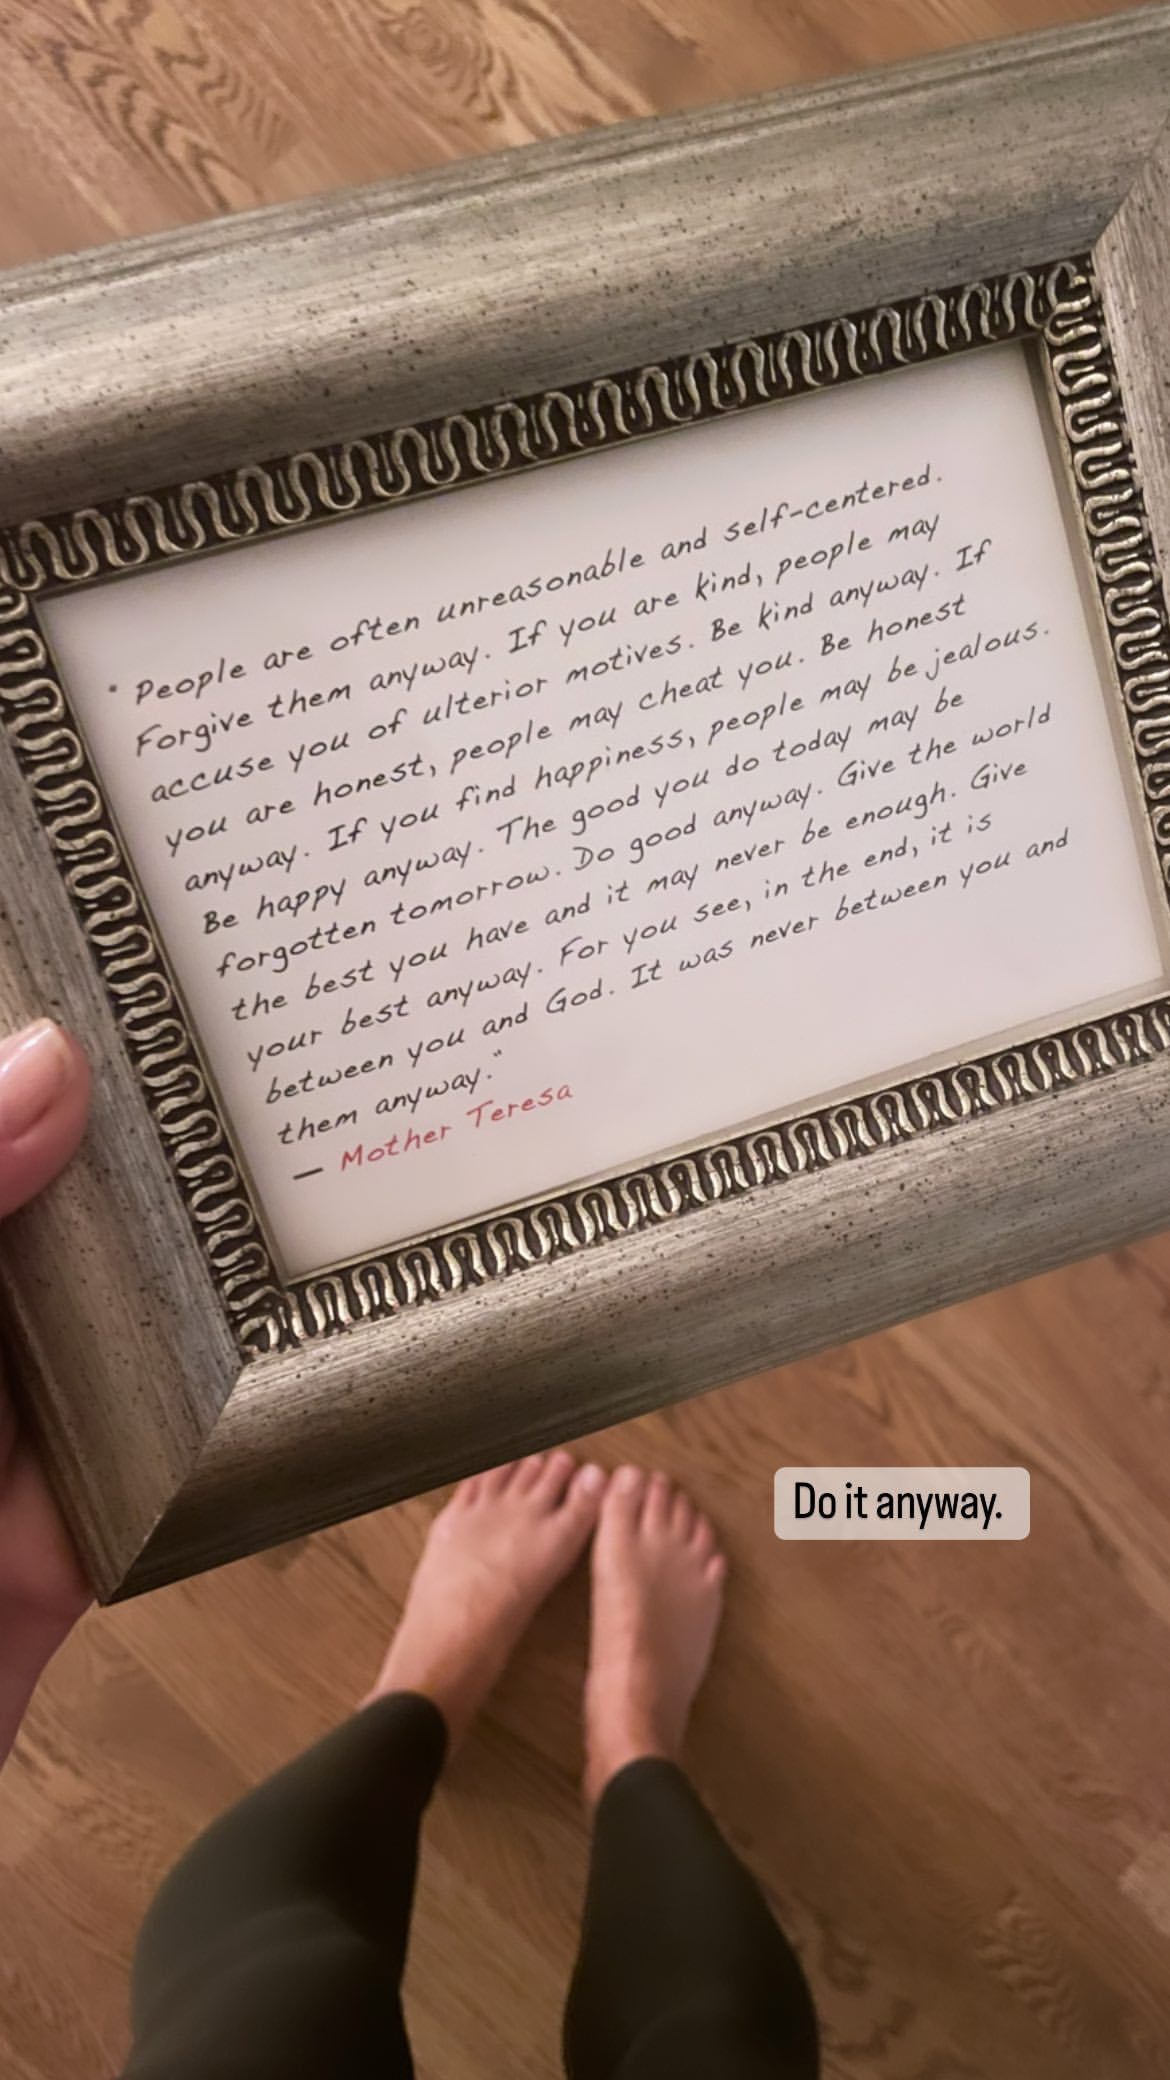 " People are often unreasonable and self-centered.
Forgive them anyway. If you are kind, people may
accuse you of ulterior motives. Be kind anyway. If
you are honest, people may cheat you. Be honest
anyway. If you find happiness, people may be jealous.
Be happy anyway. The good you do today may be
forgotten tomorrow. Do good anyway. Give the world
the best you have and it may never be enough. Give
your best anyway. For you see, in the end, it is
between you and God. It was never between you and
them anyway."
— Mother Teresa
Do it anyway.